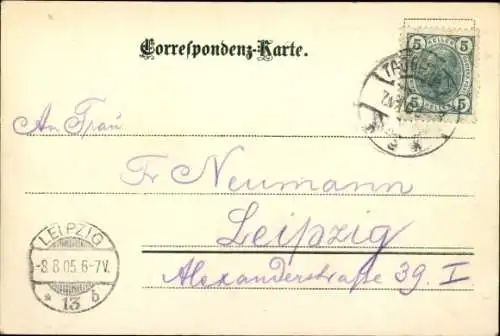 Correspondenz-Karte.
5 5
5 5
An Frau
Fr Neumann
Leipzig
Alexanderstraße 39. I.
LEIPZIG
-8.8.05.6-7V.
* 13 b